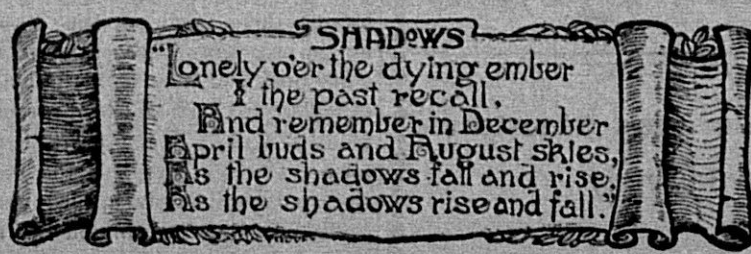 SHADOWS
"Lonely o'er the dying ember
I the past recall,
And remember in December
April buds and August skies,
As the shadows fall and rise,
As the shadows rise and fall."